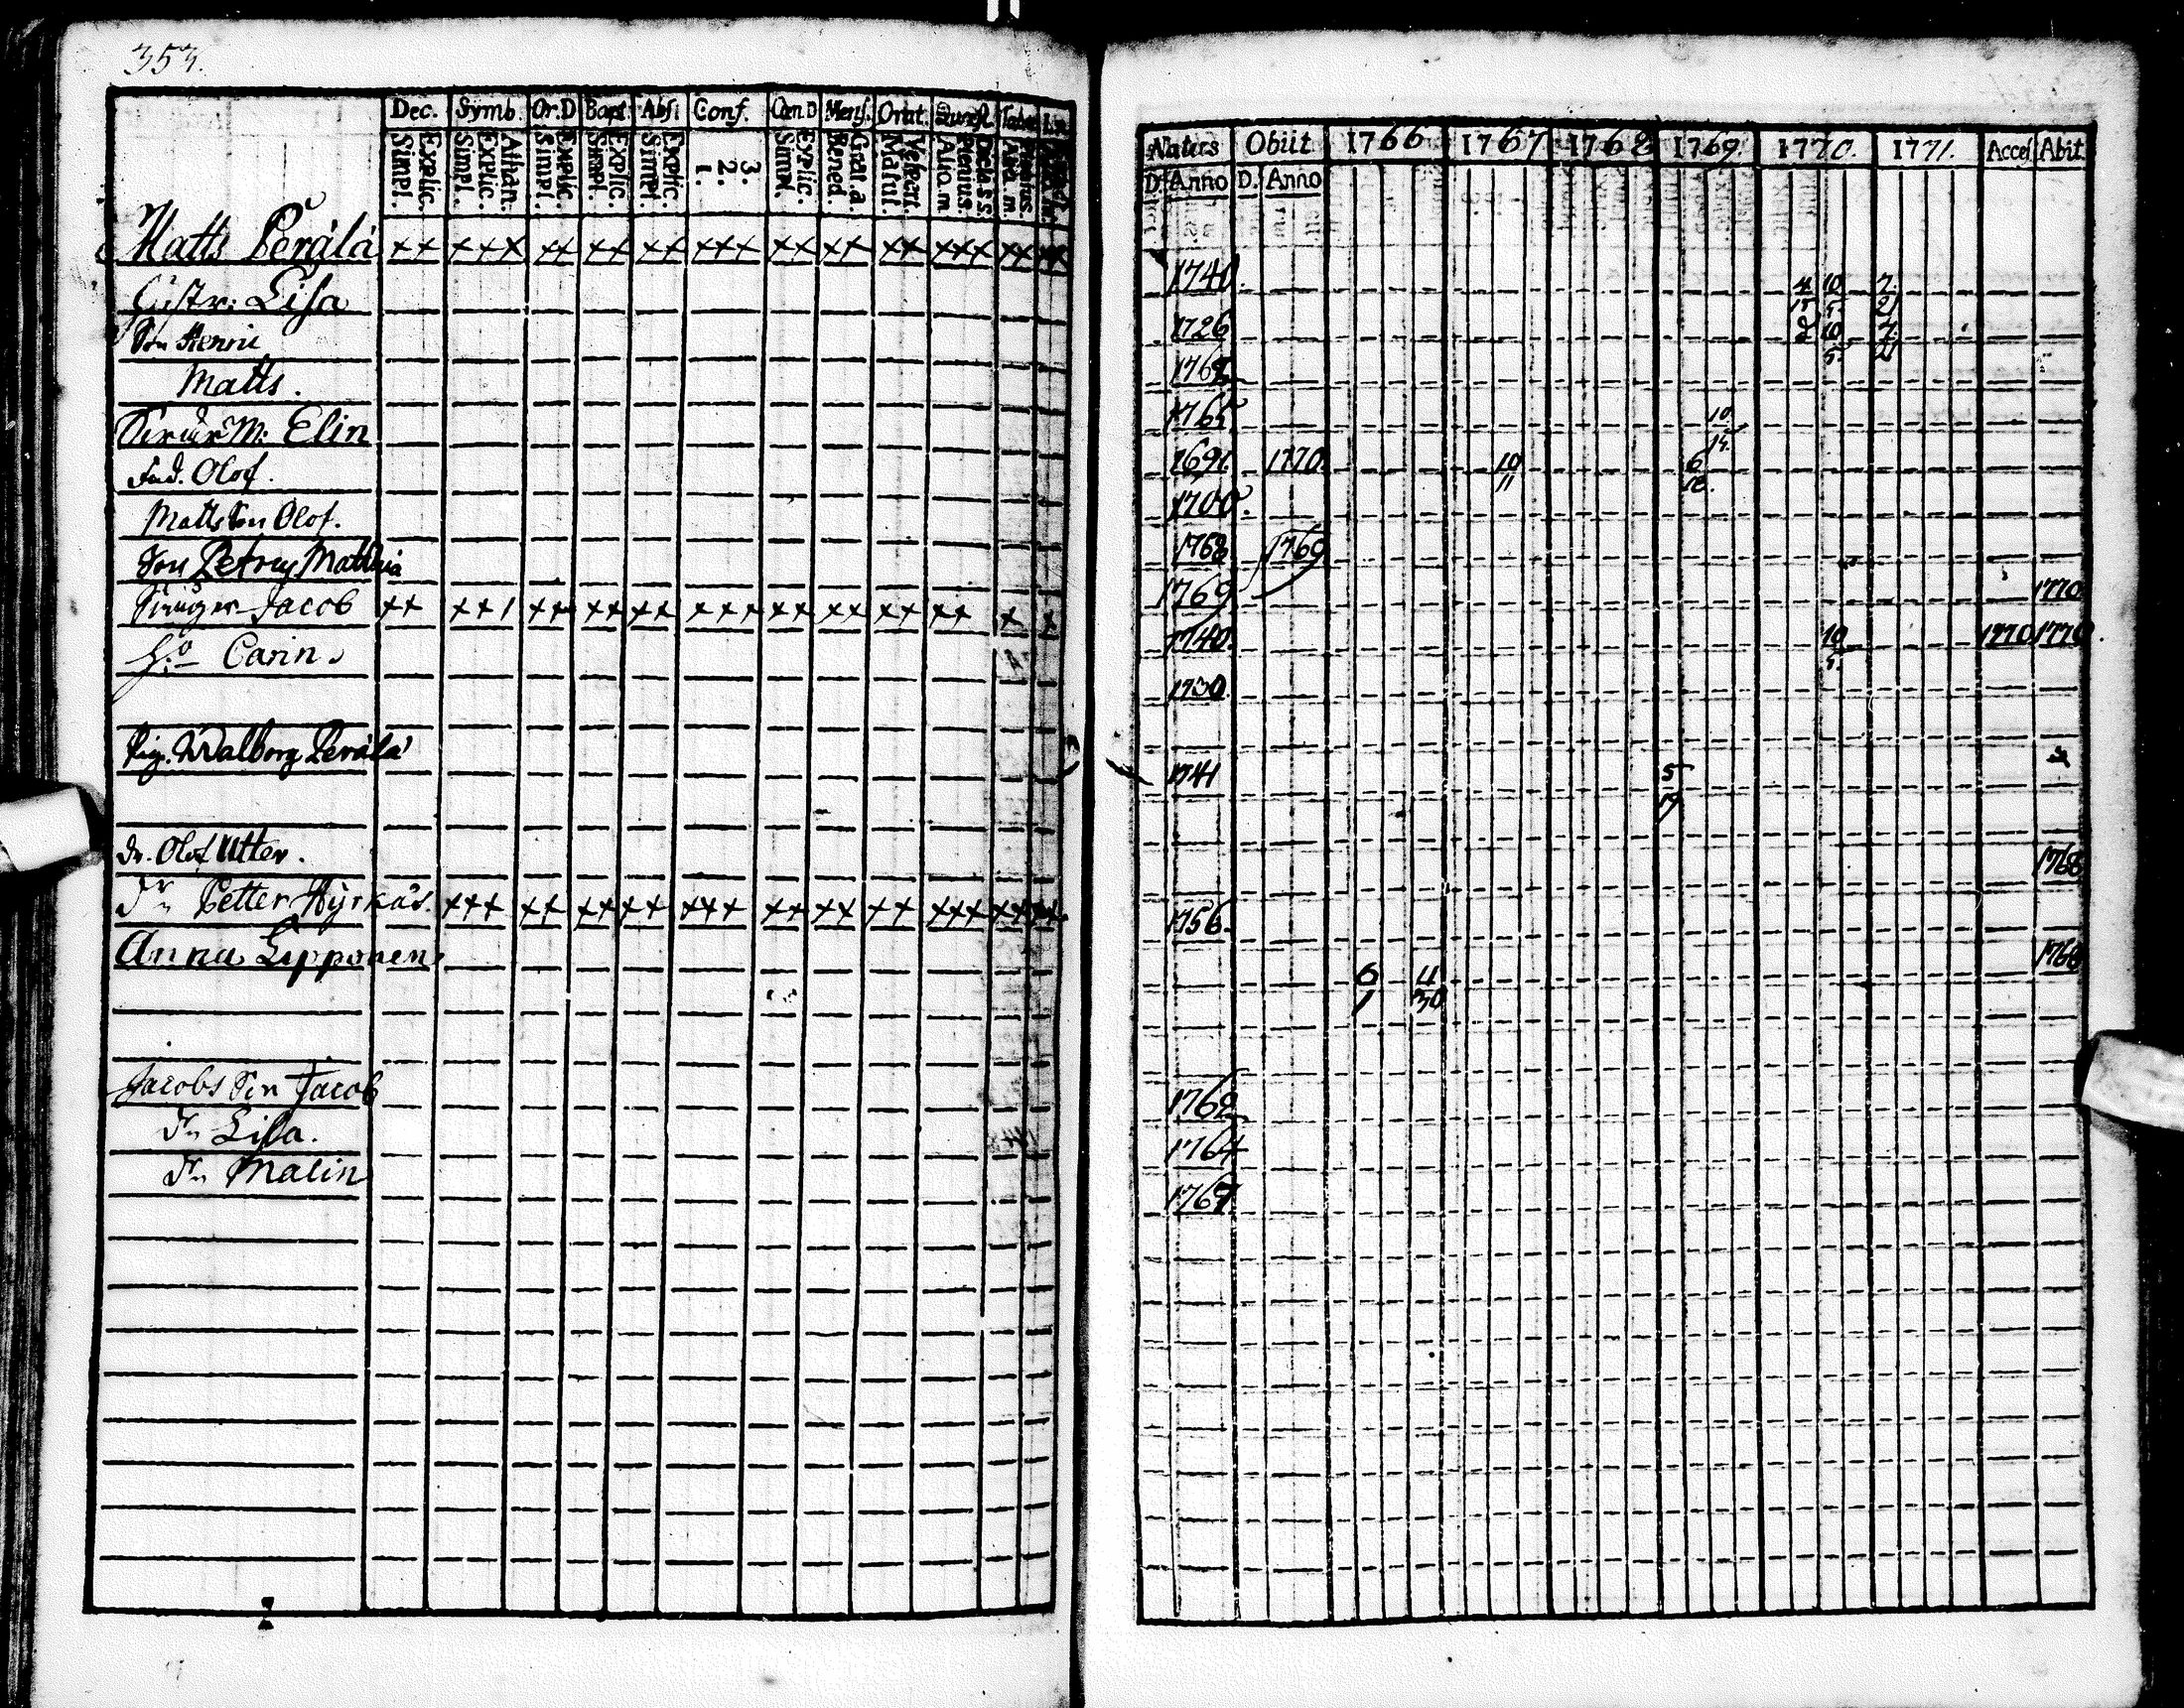 353.
Dec. Symb. Or.D Bapt. Abs. Conf. Cœn.D Mens. Orat. Quæst. Tabæ
Simpl. Explic. Simpl. Explic. Athan. Simpl. Explic. Simpl. Explic. Simpl. Explic. 1. 2. 3. Simpl. Explic. Bened. Grat.a. Matut. Vespert. Alia.m Plenius. Dicta s s.
Matts Perälä ×× ××× ×× ×× ×× ××× ×× ×× ×× ××× ×× ××
Lisa
Son Henric
Matts.
M: Elin
Olof.
Matts Son Olof.
Son Petrus Matthiæ
Jacob ×× ××/ ×× ×× ×× ××× ×× ×× ×× ×× × ×
H:o Carin.
Pig. Walborg Perälä
Dr. Olof Utter.
Petter Hyrkäs. ××× ×× ×× ×× ××× ×× ×× ×× ××× ×× ××
Anna Lipponen
Jacobs Son Jacob
Lisa.
Malin
Natus Obiit 1766 1767 1768 1769. 1770. 1771. Acces Abit
D. Anno D. Anno
1740. 4 10 7
15 5. 21
1726 2 10 7
5. 21
1762
1765 10
1691 1770. 10 6
11 18.
1700.
1768 1769
1769 1770
1740. 10 1770 1770.
5.
1730.
1741 5
19
1768
1756.
6 4 1768
1 30
1762
1764
1767